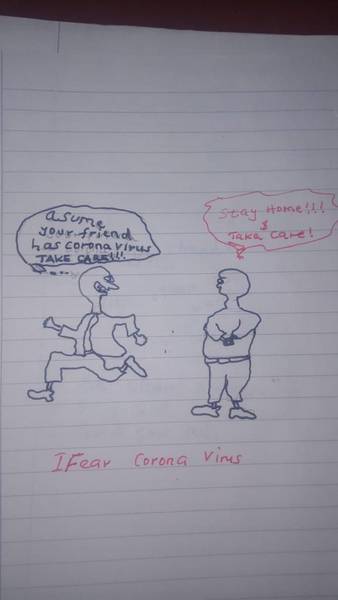 asume
your friend
has corona virus
TAKE CARE!!!
Stay Home!!!
&
Take care!
I Fear Corona Virus